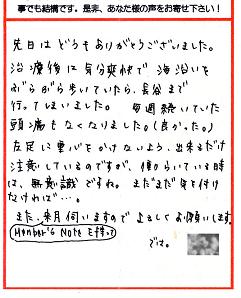 事でも結構です。是非、あなた様の声をお寄せ下さい！
先日はどうもありがとうございました。
治療後に気分爽快で海沿いを
ぶらぶら歩いていたら、長谷まで
行ってしまいました。毎週続いていた
頭痛もなくなりました。(良かった。)
左足に重心をかけないよう、出来るだけ
注意しているのですが、傾いている時
は、無意識ですね。まだまだ気を付け
なければ…。
また、来月伺いますのでよろしくお願いします。
Member's Note を持って
では。